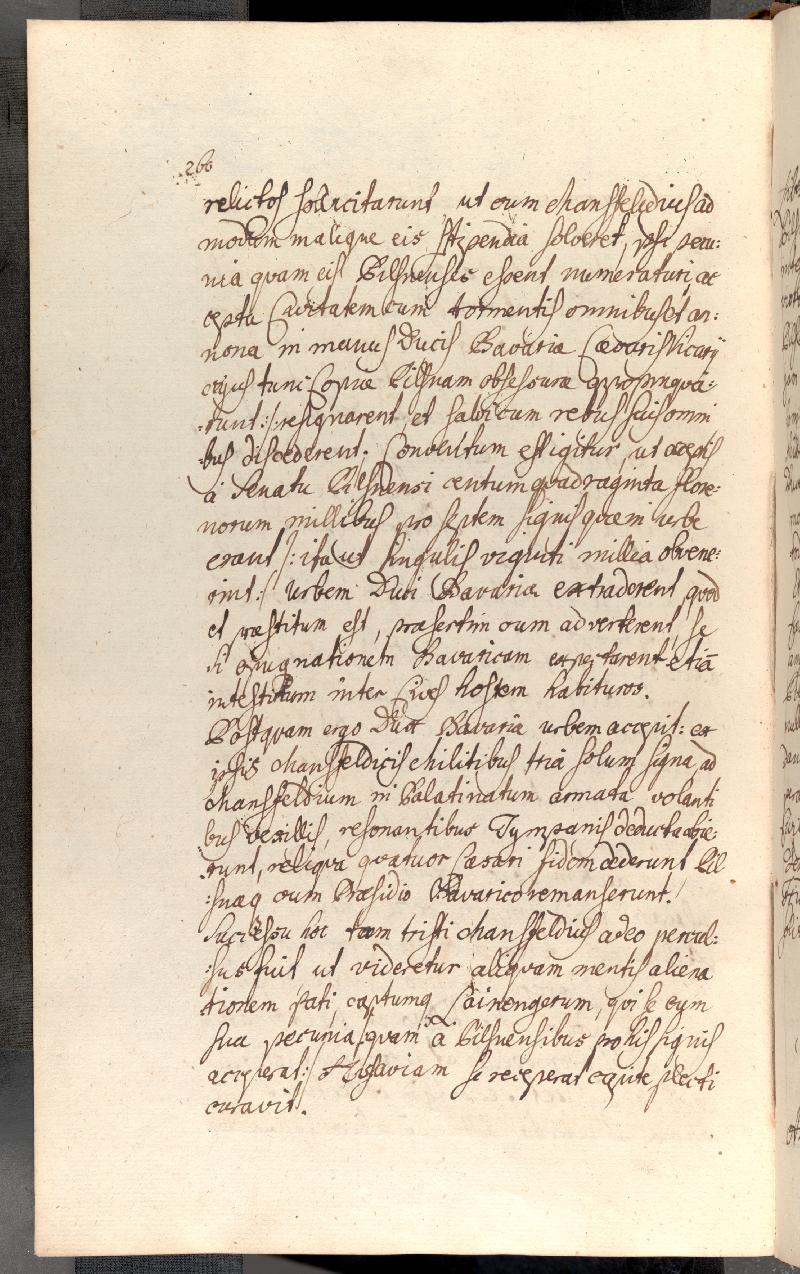 266
relictos sollicitarunt, ut cum Mansfeldius ad
modum maligne eis stipendia solveret, ipsi pecu:
nia quam eis Pilsnenses essent numeraturi, ac
cepta Civitatem cum tormentis omnibus et an:
nona in manus Ducis Bavariæ Cæsaris Vicarij
cujus tunc Copiæ Pilsnam obsessuræ appropinqua:
:runt :/: resignarent et salvi cum rebus suis omni
:bus discederent. Conventum est igitur, ut acceptis
à Senatu Pilsnensi centum quadraginta flore:
norum millibus pro septem signis quæ in urbe
erant /: ita ut singulis viginti millia obvene:
rint :/ urbem Duci Bavariæ extraderent, quod
et præstitum est, præsertim cum adverterent, se
si expugnationem Bavaricam expectarent etiã
intestinum inter Cives hostem habituros.
Postquam ergo Dux Bavariæ urbem accepit: ex
ipsis Mansfeldicis Militibus tria solum signa ad
Mansfeldium in Palatinatum armata volanti
bus vexillis, resonantibus Tympanis deducta abie:
:runt, reliqua quatuor Cæsari fidem dederunt Pil
:snæq cum Præsidio Bavarico remanserunt.
Successu hoc tam tristi Mansfeldius adeo percul:
:sus fuit ut videretur aliquam mentis aliena
tionem pati, captumq, qui se cum
sua pecunia /: quam à Pilsnensibus pro his signis
acceperat :/ se receperat capite plecti
curavit.